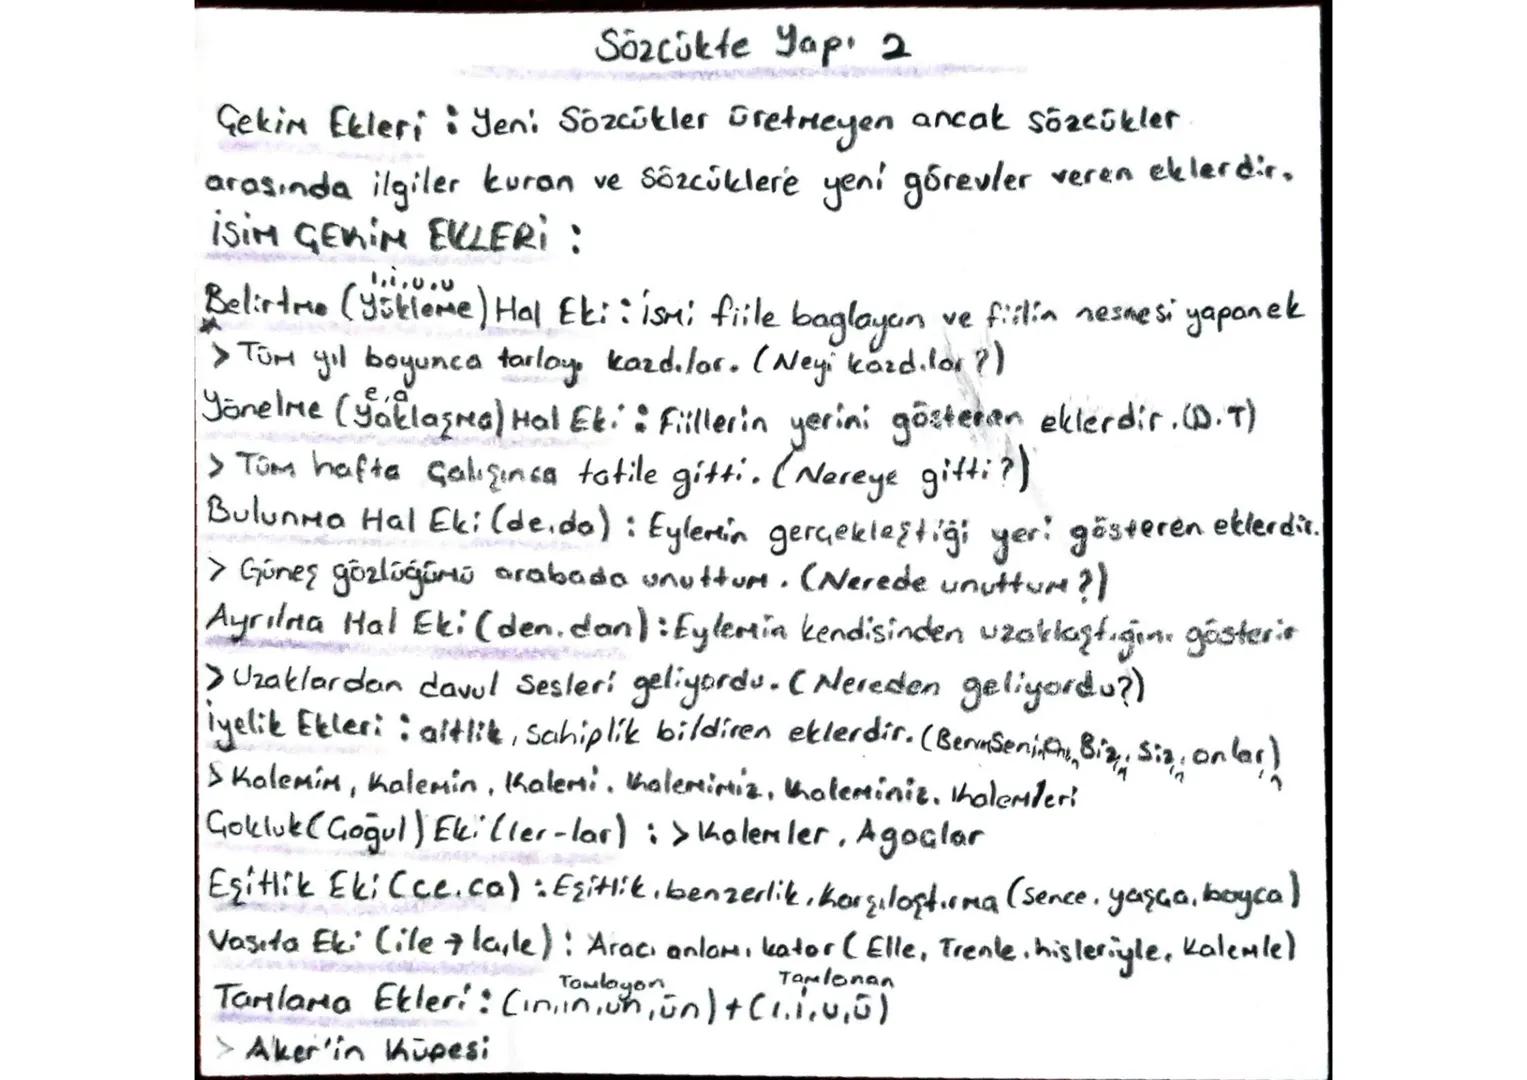 Sözcükte Yapı 2
Çekim Ekleri : Yeni Sözcükler üretmeyen ancak sözcükler
arasında ilgiler kuran ve sözcüklere yeni görevler veren eklerdir.
İSİM ÇEKİM EKLERİ :
ı,i,u,ü
Belirtme (Yükleme) Hal Eki : İsmi fiile bağlayan ve fiilin nesnesi yapan ek
> Tüm yıl boyunca tarlayı kazdılar. (Neyi kazdılar?)
e,a
Yönelme (Yaklaşma) Hal Eki : Fiillerin yerini gösteren eklerdir. (D.T)
> Tüm hafta çalışınca tatile gitti. (Nereye gitti?)
Bulunma Hal Eki (de,da) : Eylemin gerçekleştiği yeri gösteren eklerdir.
> Güneş gözlüğümü arabada unuttum. (Nerede unuttum?)
Ayrılma Hal Eki (den,dan) : Eylemin kendisinden uzaklaştığını gösterir
> Uzaklardan davul sesleri geliyordu. (Nereden geliyordu?)
İyelik Ekleri : aitlik, sahiplik bildiren eklerdir. (Benim, Senin, Onun, Bizim, Sizin, onların)
> Kalemim, Kalemin, Kalemi, Kalemimiz, Kaleminiz, Kalemleri
Çokluk (Çoğul) Eki (ler-lar) : > Kalemler, Ağaçlar
Eşitlik Eki (ce,ca) : Eşitlik, benzerlik, karşılaştırma (sence, yaşça, boyca)
Vasıta Eki (ile → la,le) : Aracı anlamı katar (Elle, Trenle, hisleriyle, Kalemle)
Tamlayan Tamlanan
Tamlama Ekleri : (ın,in,un,ün) + (ı,i,u,ü)
> Aker'in Küpesi